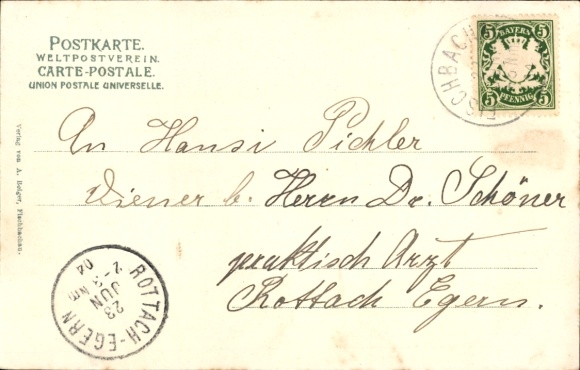 POSTKARTE.
WELTPOSTVEREIN.
CARTE-POSTALE.
UNION POSTALE UNIVERSELLE.
5 BAYERN 5
5 PFENNIG 5
FISCHBACH
An Hansi Pichler
Diener b. Herrn Dr. Schöner
praktisch Arzt
Rottach Egern.
Verlag von A. Bodger, Fischbachau.
ROTTACH-EGERN
23
JUN
2-3 Nm
04